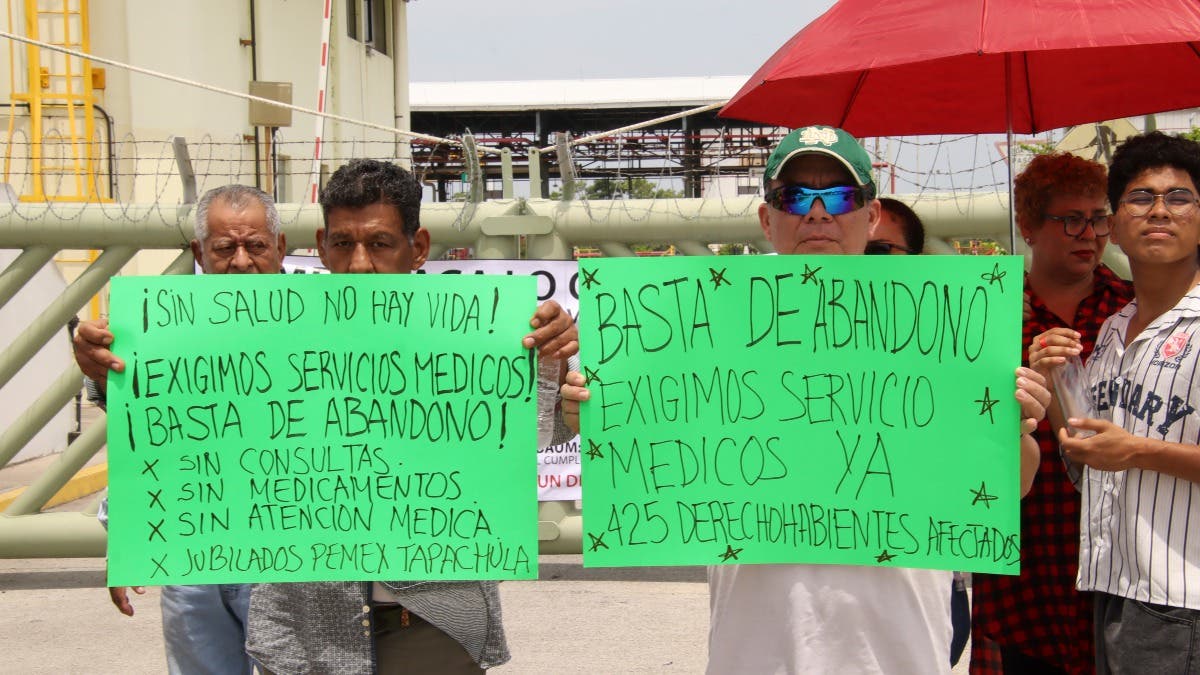 ¡SIN SALUD NO HAY VIDA!
¡EXIGIMOS SERVICIOS MEDICOS!
¡BASTA DE ABANDONO!
x SIN CONSULTAS.
x SIN MEDICAMENTOS.
x SIN ATENCION MEDICA.
x JUBILADOS PEMEX TAPACHULA
BASTA DE ABANDONO
EXIGIMOS SERVICIO
MEDICOS YA
425 DERECHOHABIENTES AFECTADOS
CAUM:
CUMPL
UN DI